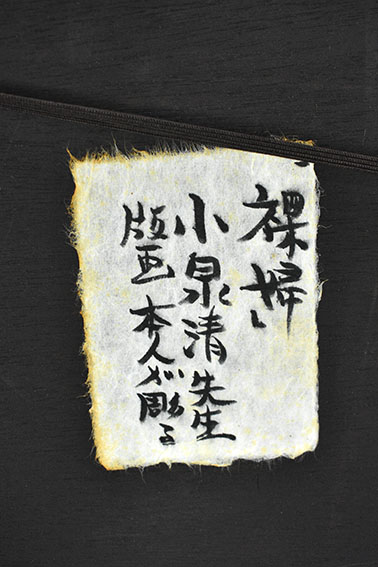 裸婦」
小泉清先生
版画 本人が彫る